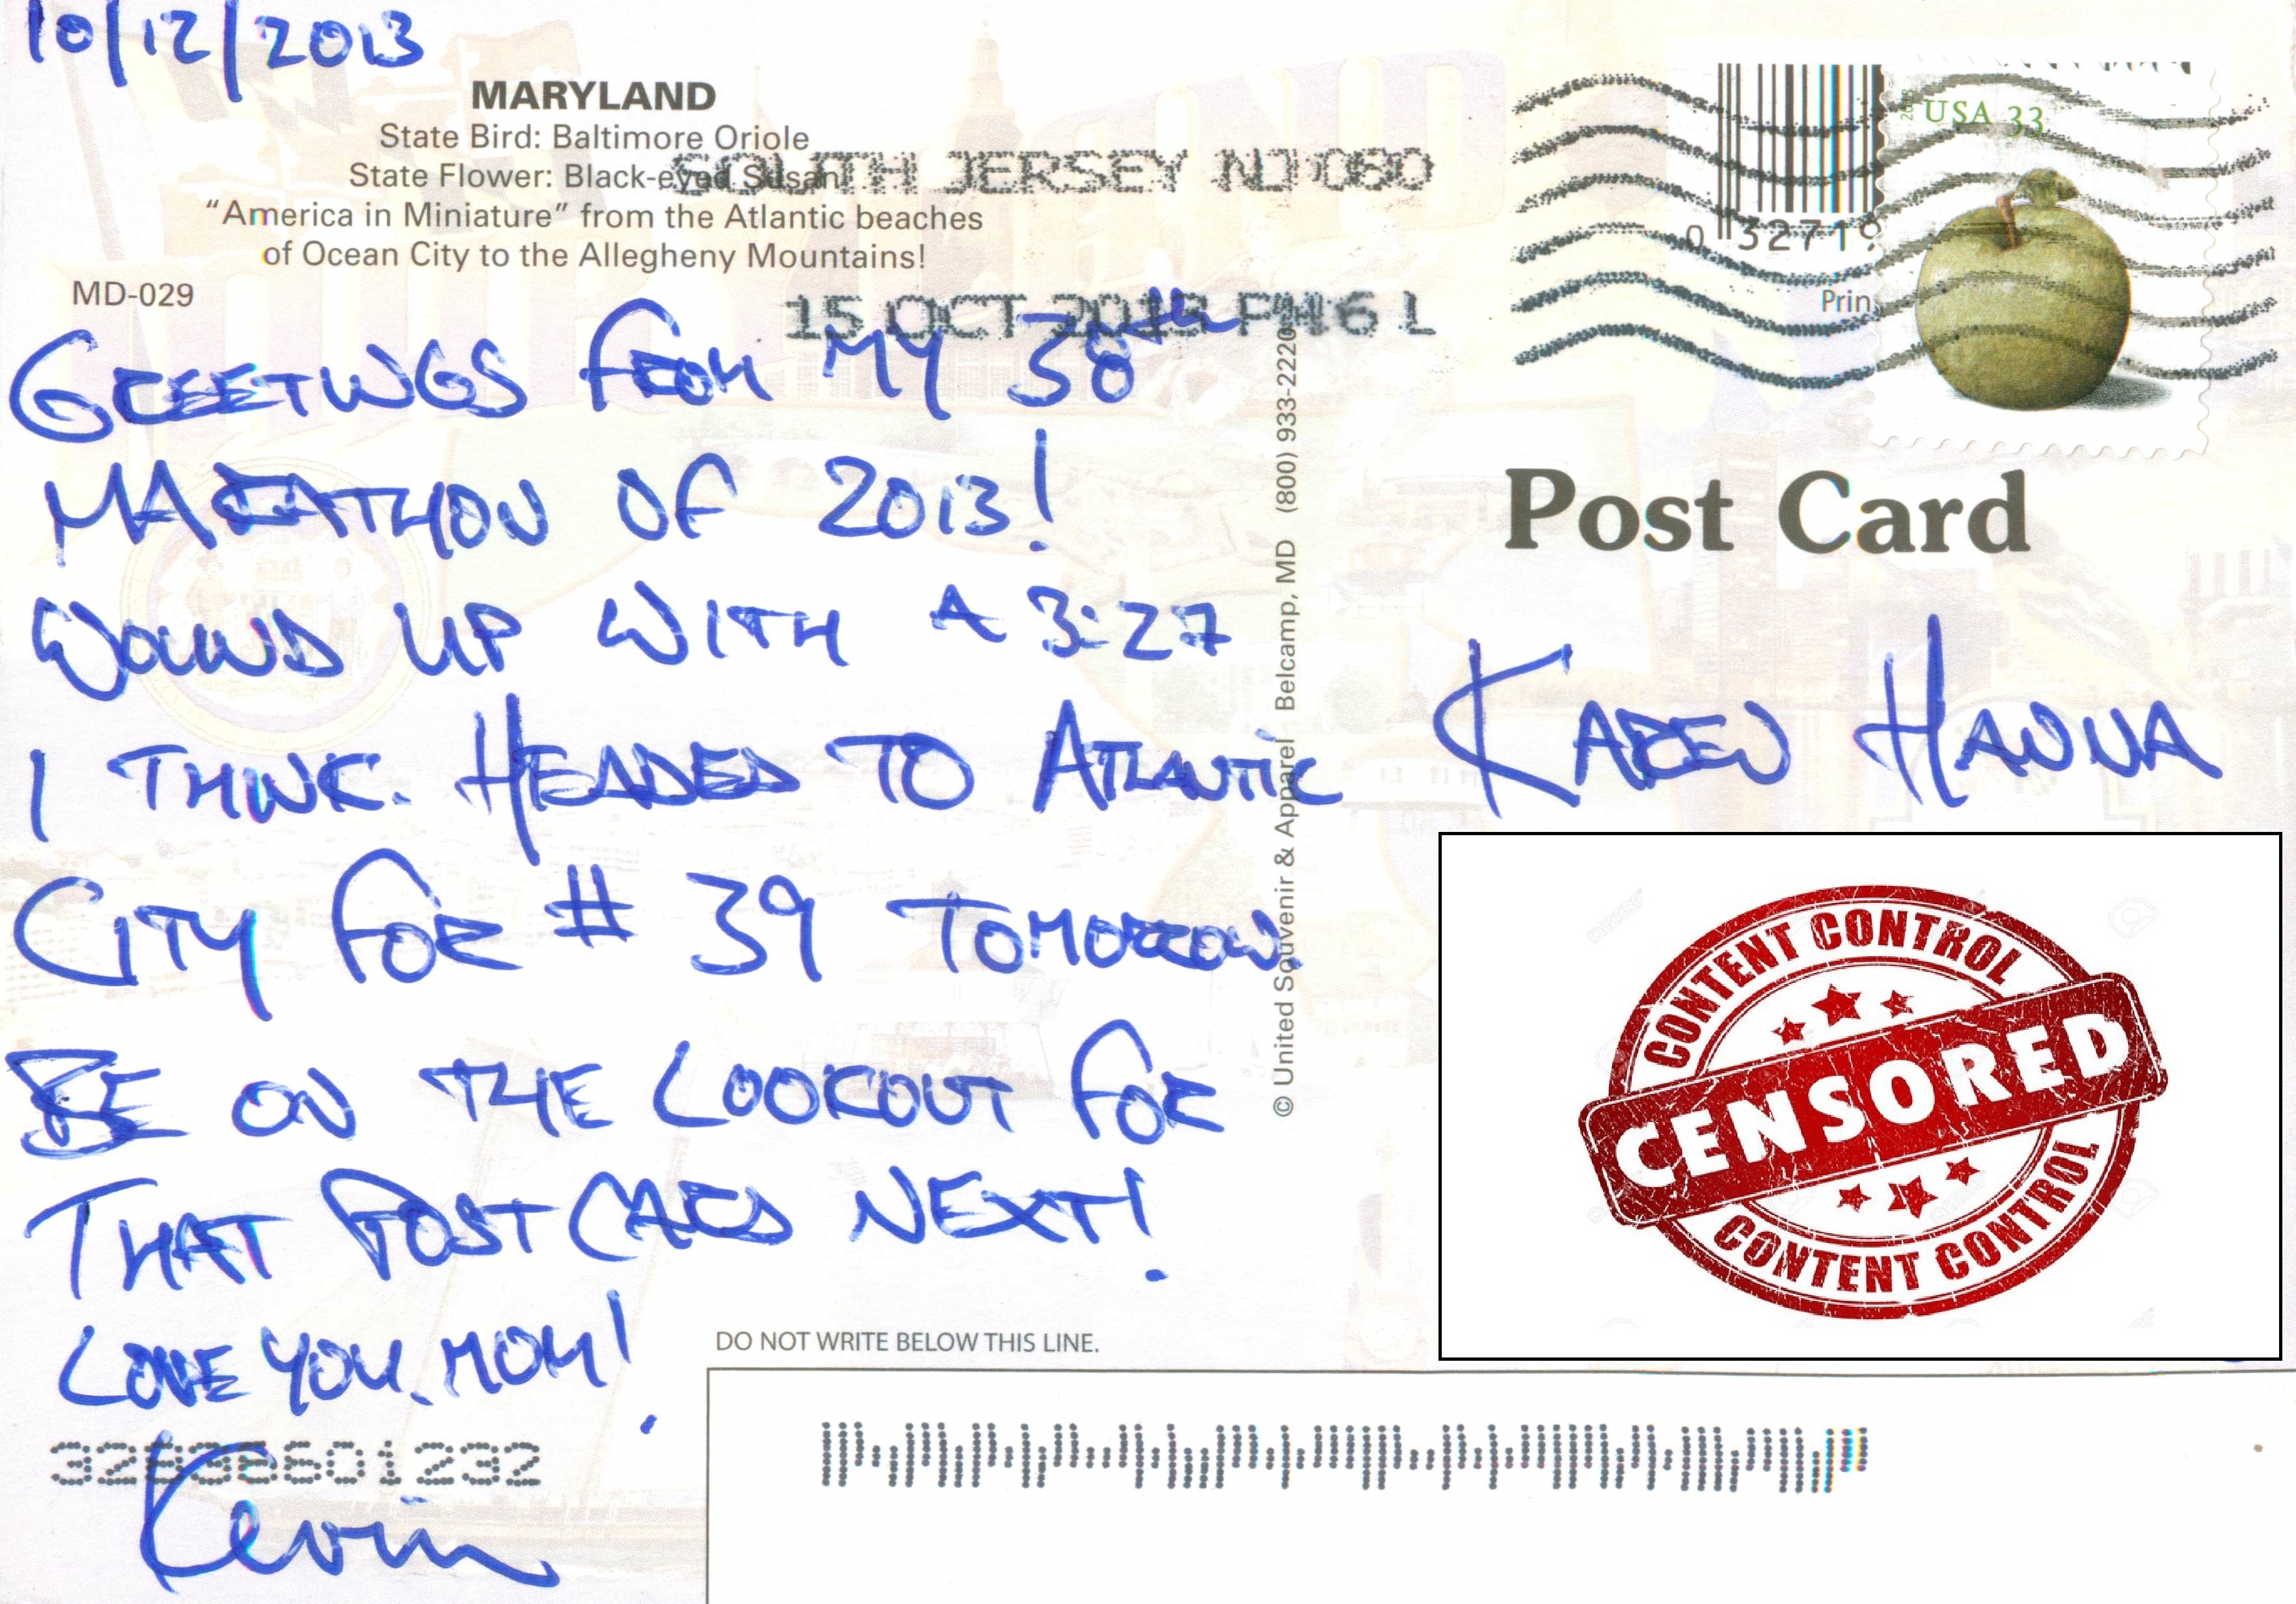 10/12/2013
MARYLAND
State Bird: Baltimore Oriole
State Flower: Black-eyed Susan
"America in Miniature" from the Atlantic beaches
of Ocean City to the Allegheny Mountains!
MD-029
SOUTH JERSEY NJ 080
15 OCT 2013 PM 6 L
USA 33
0 32719
Prin
GREETINGS FROM MY 38th
MARATHON OF 2013!
WOUND UP WITH A 3:27
I THINK. HEADED TO ATLANTIC
CITY FOR # 39 TOMORROW.
BE ON THE LOOKOUT FOR
THAT POSTCARD NEXT!
LOVE YOU, MOM!
Kevin
© United Souvenir & Apparel Belcamp, MD (800) 933-2220
Post Card
KAREN HANNA
CONTENT CONTROL
CENSORED
CONTENT CONTROL
DO NOT WRITE BELOW THIS LINE.